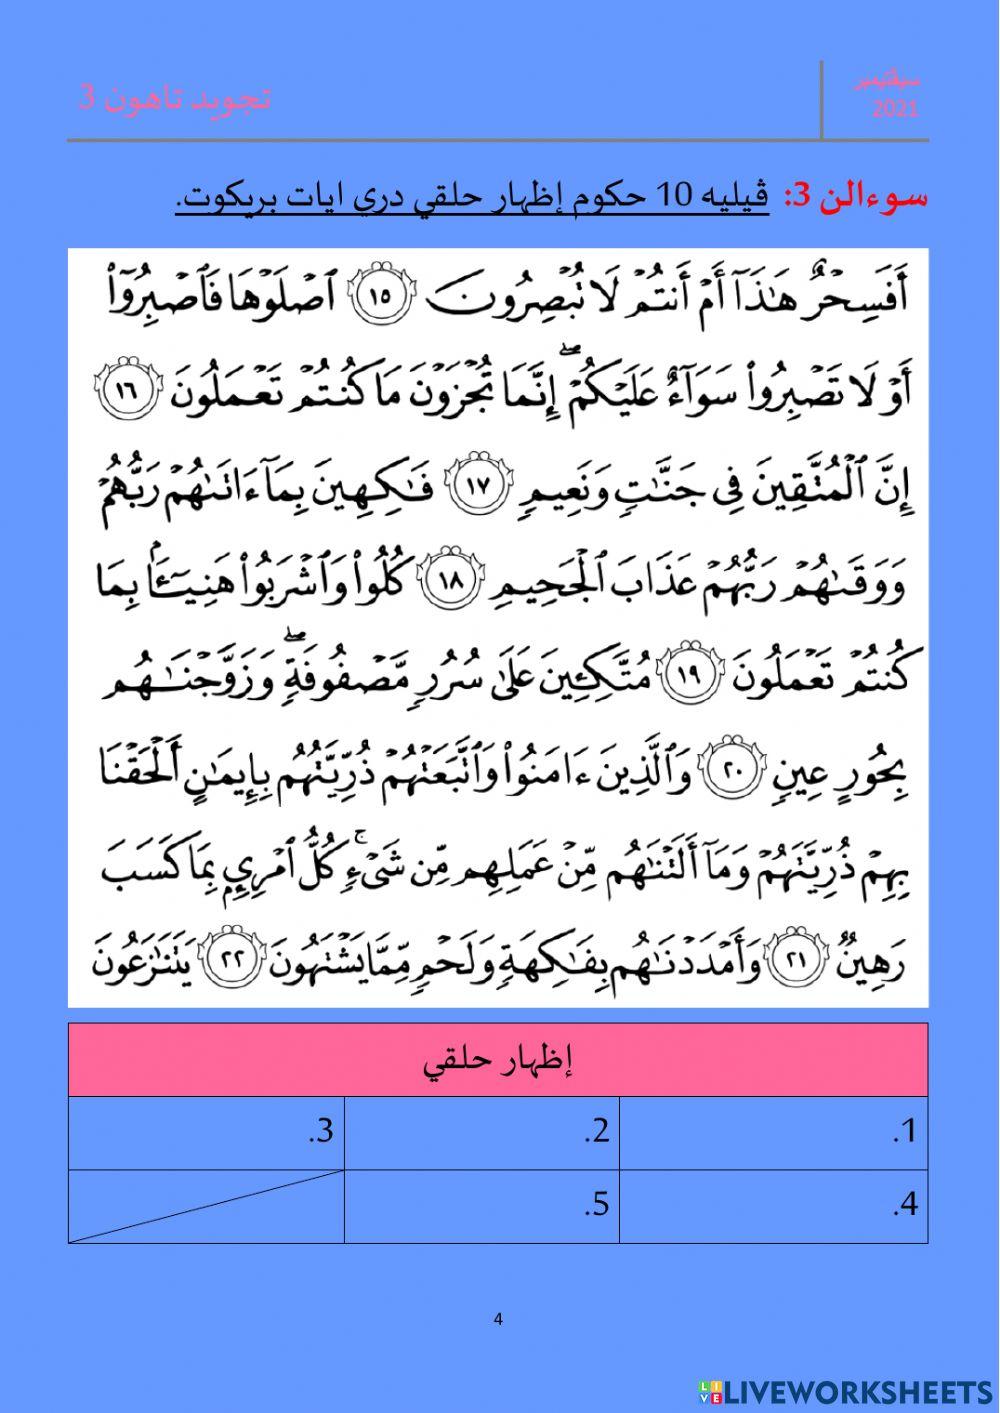 تجويد تاهون 3
سيڤتيمبر
2021
سوءالن 3: ڤيليه 10 حكوم إظهار حلقي دري ايات بريكوت.
أَفَسِحْرٌ هَٰذَآ أَمْ أَنتُمْ لَا تُبْصِرُونَ ١٥ ٱصْلَوْهَا فَٱصْبِرُوٓا۟
أَوْ لَا تَصْبِرُوا۟ سَوَآءٌ عَلَيْكُمْ ۖ إِنَّمَا تُجْزَوْنَ مَا كُنتُمْ تَعْمَلُونَ ١٦
إِنَّ ٱلْمُتَّقِينَ فِى جَنَّٰتٍ وَنَعِيمٍ ١٧ فَٰكِهِينَ بِمَآ ءَاتَىٰهُمْ رَبُّهُمْ
وَوَقَىٰهُمْ رَبُّهُمْ عَذَابَ ٱلْجَحِيمِ ١٨ كُلُوا۟ وَٱشْرَبُوا۟ هَنِيٓـًٔۢا بِمَا
كُنتُمْ تَعْمَلُونَ ١٩ مُتَّكِـِٔينَ عَلَىٰ سُرُرٍ مَّصْفُوفَةٍ ۖ وَزَوَّجْنَٰهُم
بِحُورٍ عِينٍ ٢٠ وَٱلَّذِينَ ءَامَنُوا۟ وَٱتَّبَعَتْهُمْ ذُرِّيَّتُهُم بِإِيمَٰنٍ أَلْحَقْنَا
بِهِمْ ذُرِّيَّتَهُمْ وَمَآ أَلَتْنَٰهُم مِّنْ عَمَلِهِم مِّن شَىْءٍ ۚ كُلُّ ٱمْرِئٍۭ بِمَا كَسَبَ
رَهِينٌ ٢١ وَأَمْدَدْنَٰهُم بِفَٰكِهَةٍ وَلَحْمٍ مِّمَّا يَشْتَهُونَ ٢٢ يَتَنَٰزَعُونَ
إظهار حلقي
1. 2. 3.
4. 5.
4
LIVEWORKSHEETS